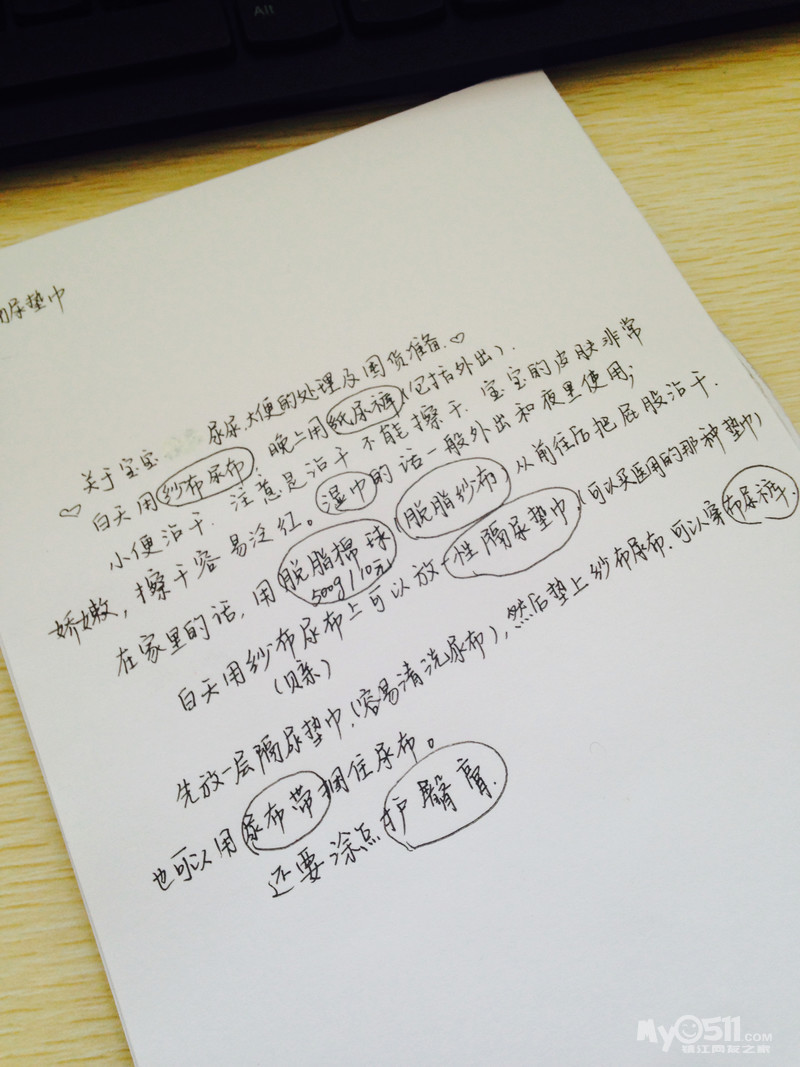 Alt
尿垫巾
关于宝宝 尿尿、大便的处理及囤货准备.♡
♡ 白天用纱布尿布; 晚上用纸尿裤(包括外出).
小便沾干. 注意是沾干不能擦干. 宝宝的皮肤非常
娇嫩, 擦干容易泛红。湿巾的话一般外出和夜里使用;
在家里的话, 用脱脂棉球(脱脂纱布)从前往后把屁股沾干.
500g/10元
白天用纱布尿布上可以放一性隔尿垫巾(可以买医用的那种垫巾)
(贝亲)
先放一层隔尿垫巾.(容易清洗尿布), 然后垫上纱布尿布. 可以穿布尿裤.
也可以用尿布带捆住尿布。
还要涂点护臀膏.
My0511.COM
镇江网友之家